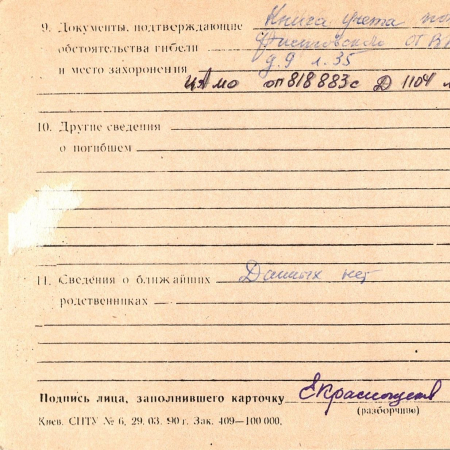 9. Документы, подтверждающие Книга учета
обстоятельства гибели
и место захоронения д.9 л.35
ЦАМО оп 818 883с Д 1104
10. Другие сведения
о погибшем
11. Сведения о ближайших Данных нет
родственниках
Подпись лица, заполнившего карточку
(разборчиво)
Киев. СПТУ № 6, 29. 03. 90 г. Зак. 409—100 000.